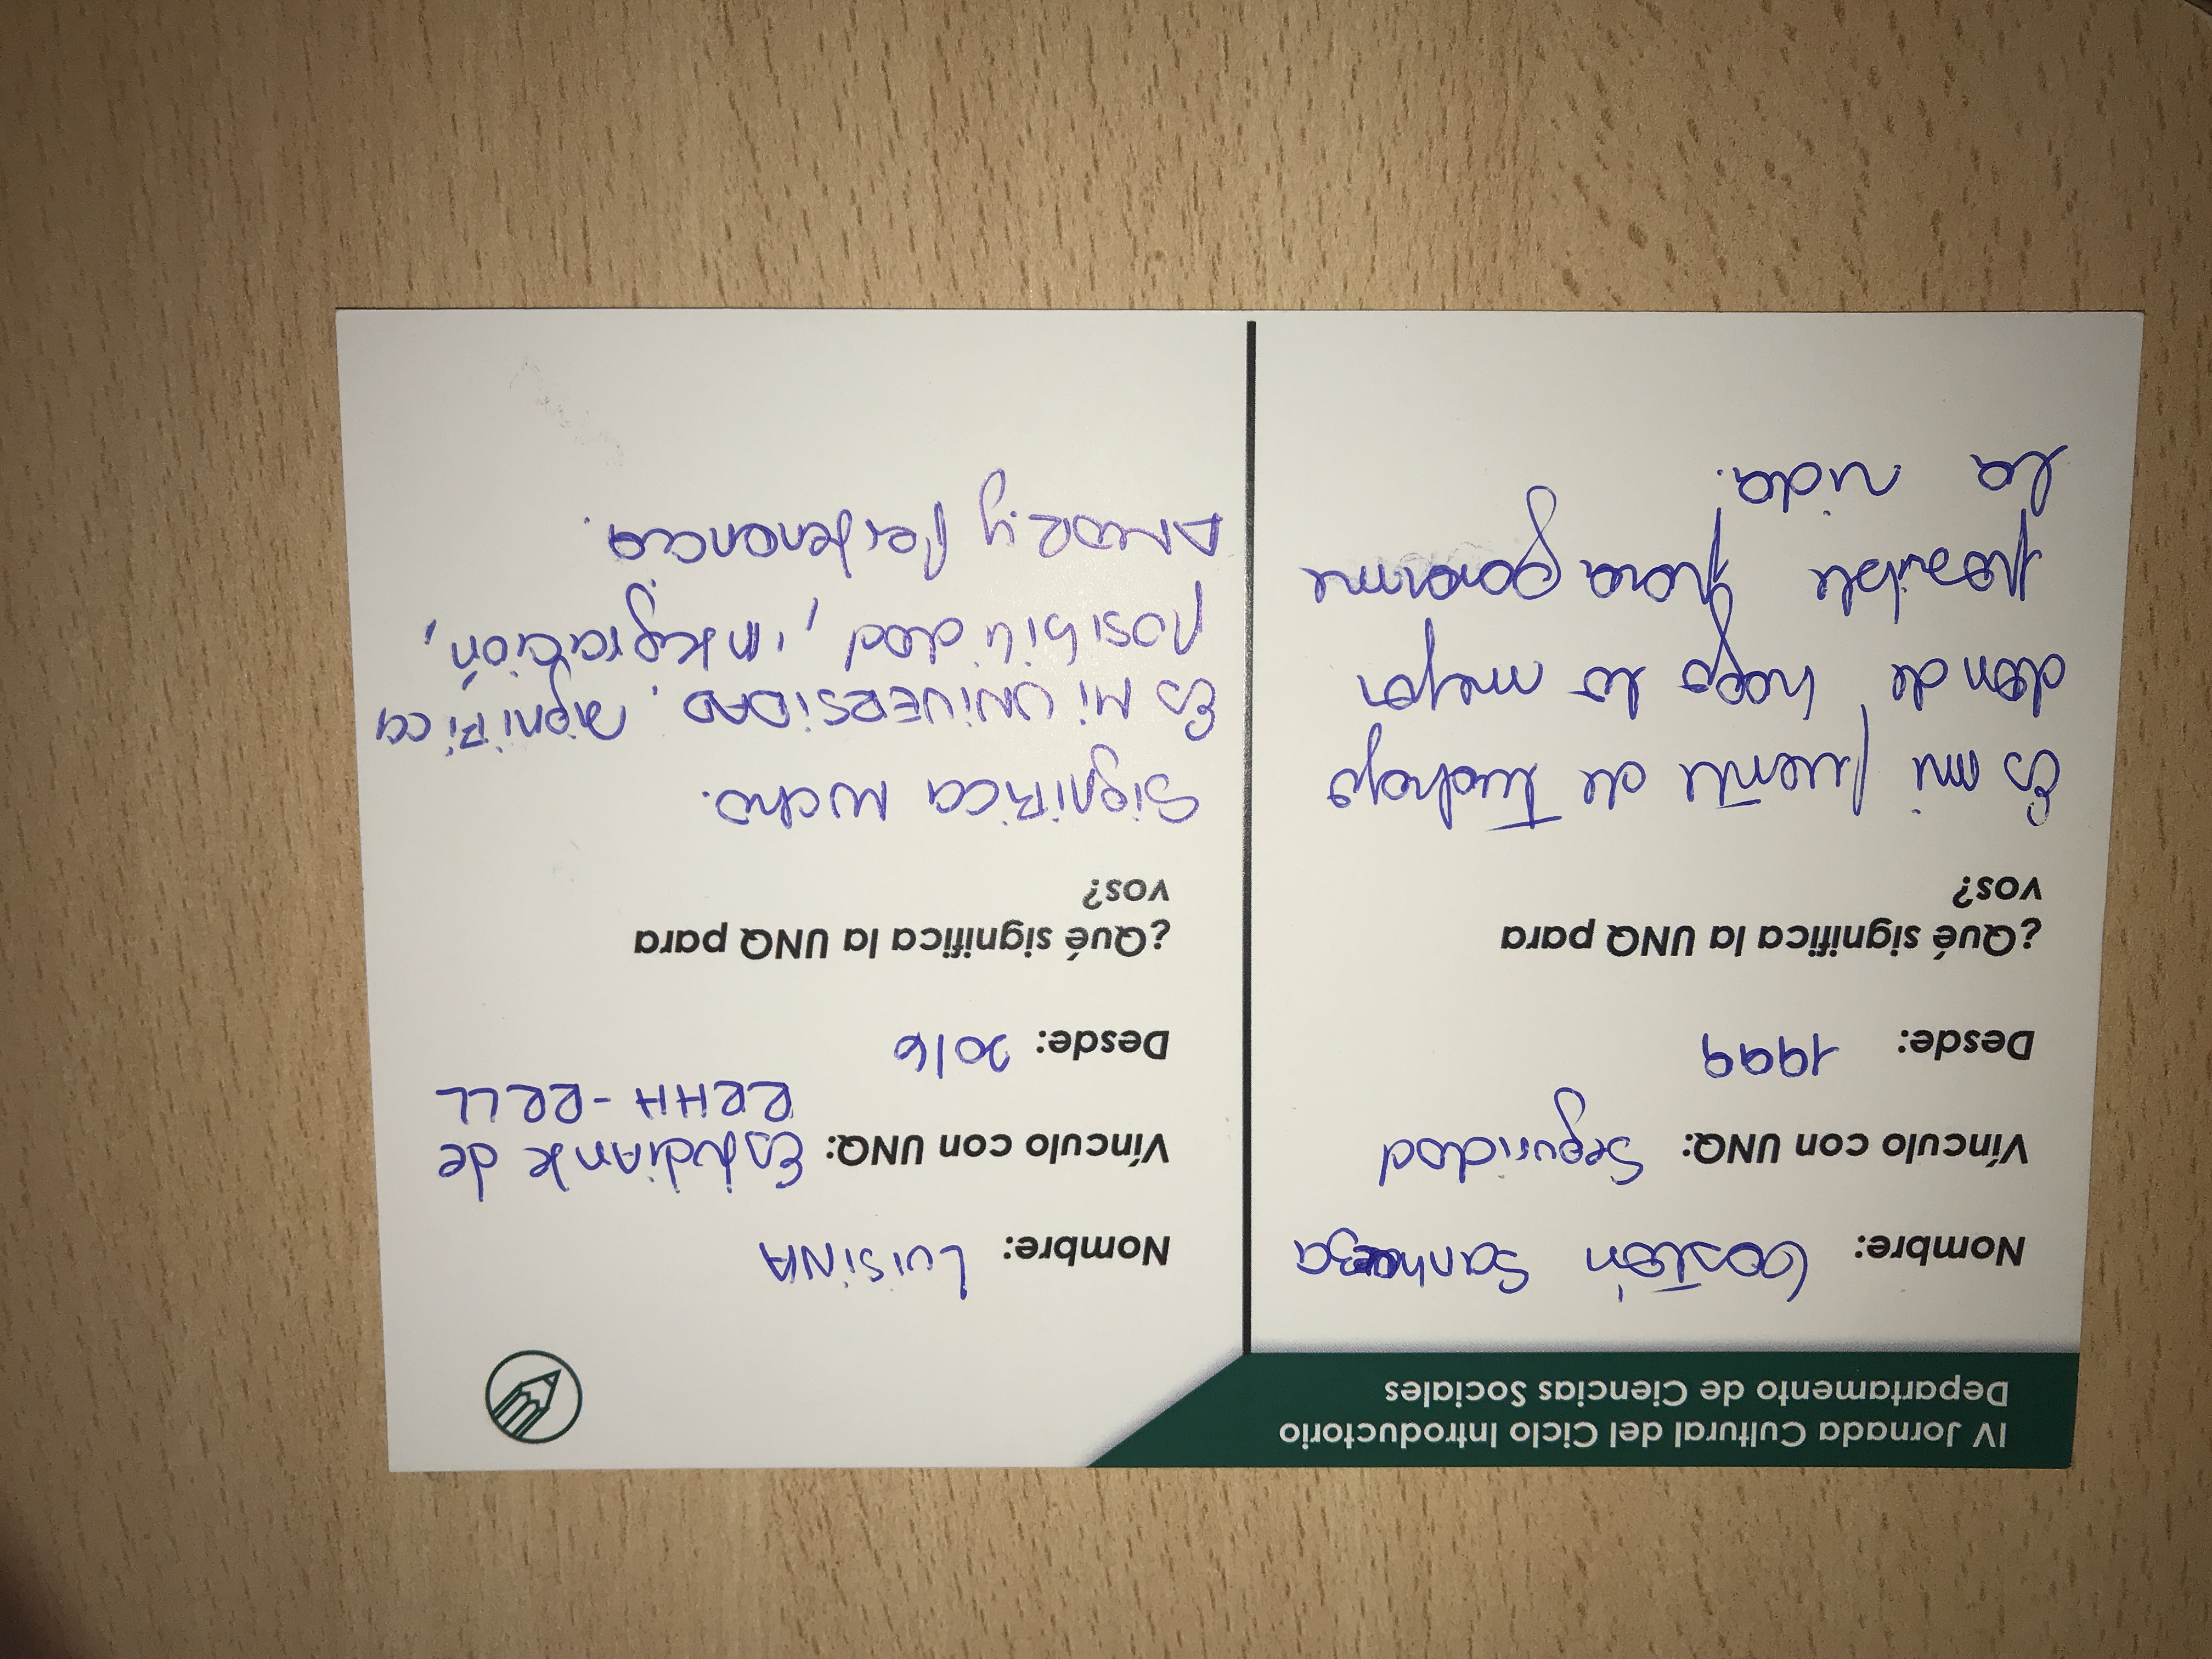 IV Jornada Cultural del Ciclo Introductorio
Departamento de Ciencias Sociales
Nombre: Gastón
Vínculo con UNQ: Seguridad
Desde: 1999
¿Qué significa la UNQ para
vos?
Es mi fuente de Trabajo
donde hago lo mejor
posible para ganarme
la vida.
Nombre: LUISINA
Vínculo con UNQ: Estudiante de
RRHH - RRLL
Desde: 2016
¿Qué significa la UNQ para
vos?
Significa mucho.
Es mi UNIVERSIDAD, significa
posibilidad, integración,
AMOR y pertenencia.